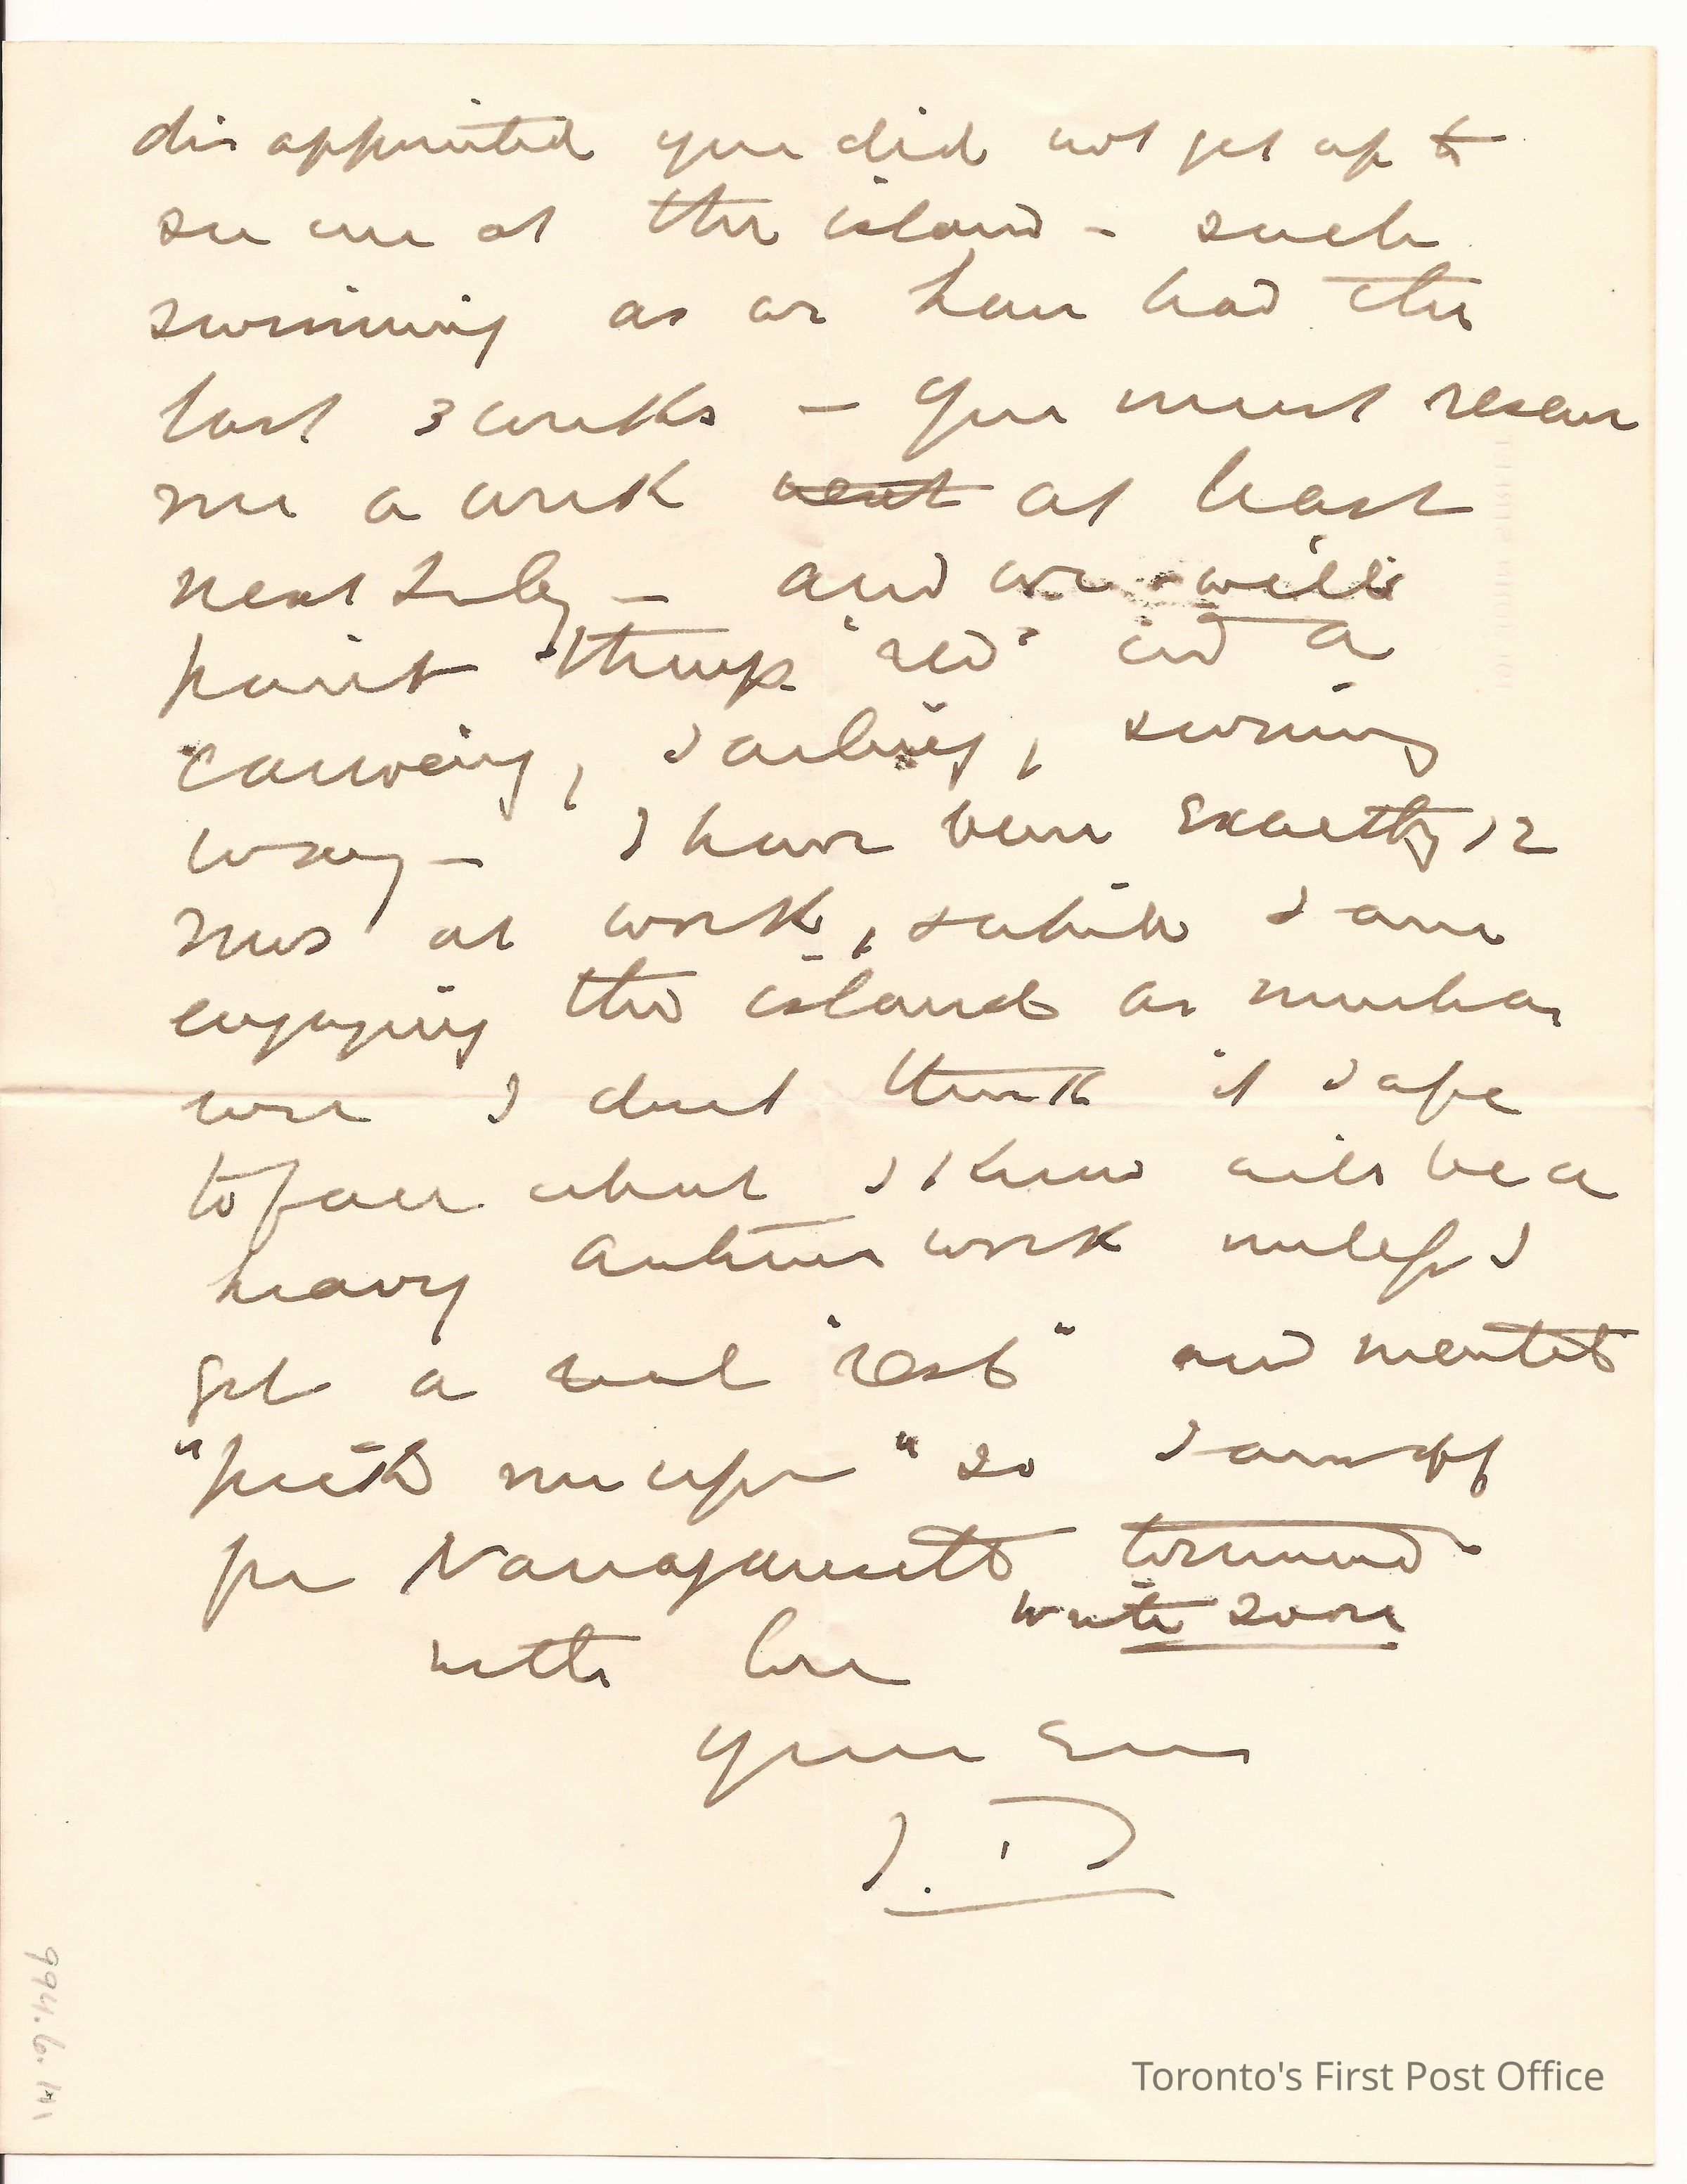 disappointed you did not get up to
see me at the island - such
swimming as we have had the
last 3 weeks - You must reserve
me a week next at least
next July - and we will
paint things "red" in a
canoeing, sailing, swiming
way - I have been exactly 12
mos at work, & while I am
enjoying the island as much as
ever I dont think it safe
to face what I know will be a
heavy autumn work unless I
get a real "rest" and mental
"pick me up" so I am off
for Narragansett tomorrow
write soon
with love
Your Ever
J. D
994.6.
Toronto's First Post Office